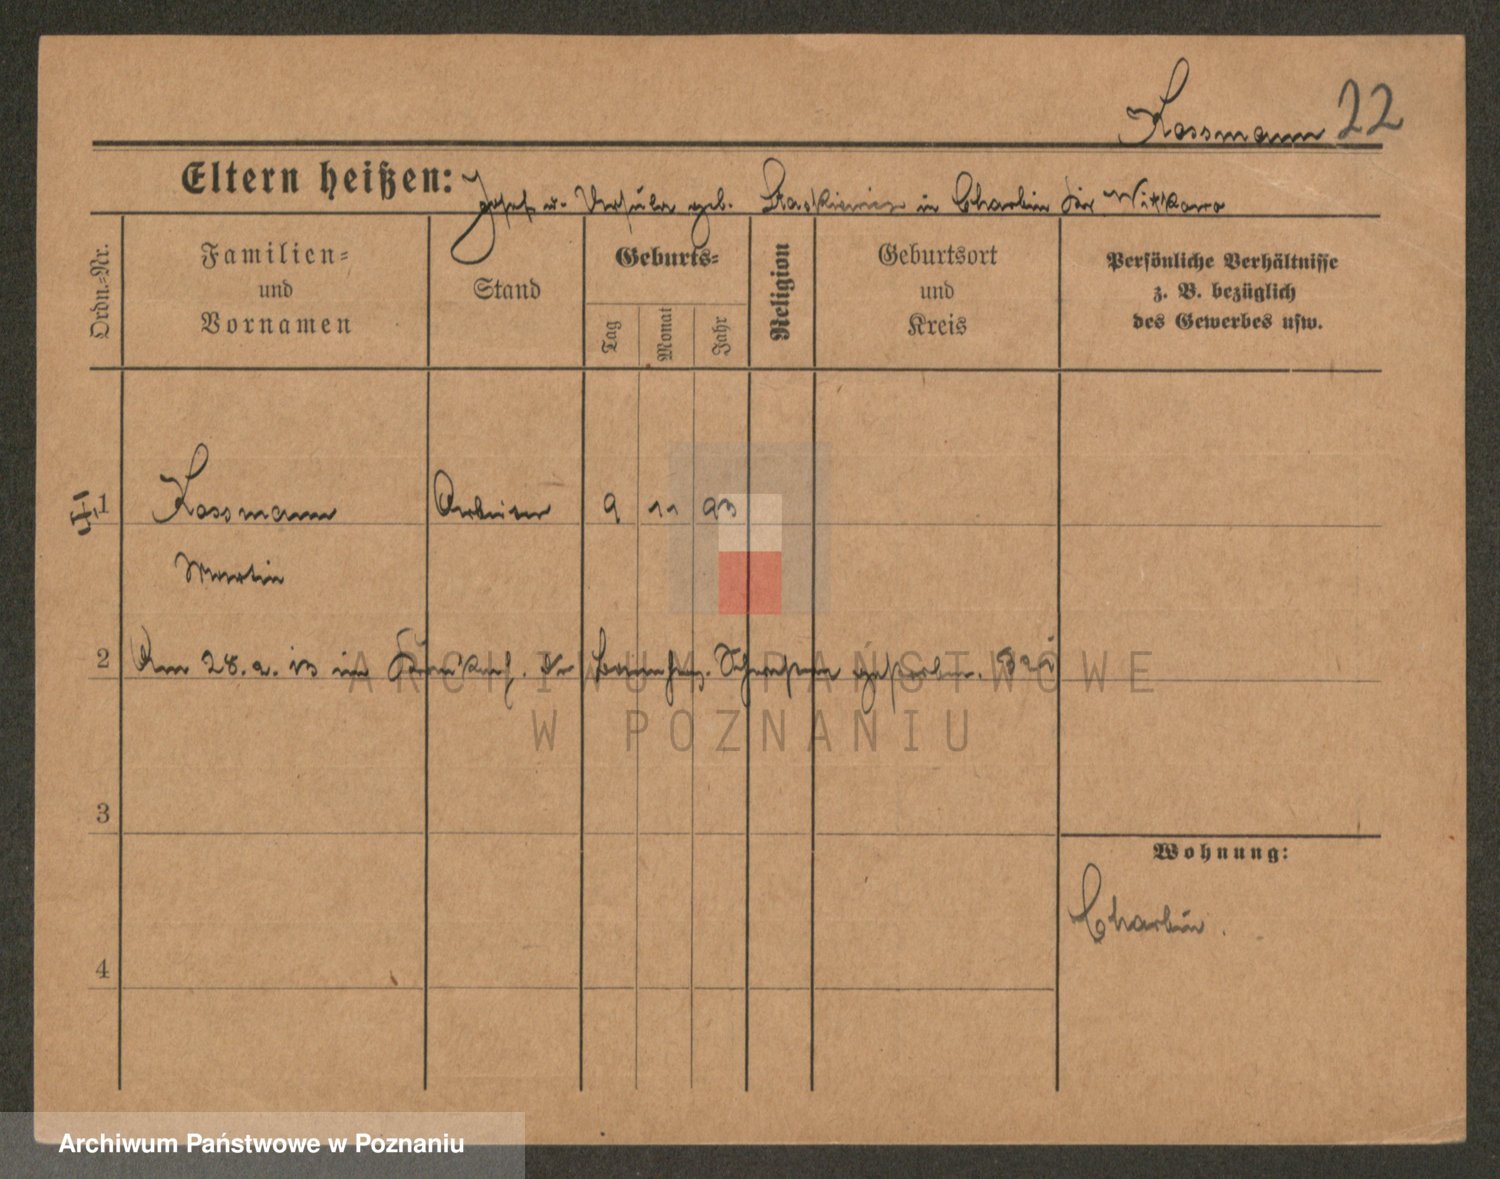 Kossmann 22
Eltern heißen: Josef u. Ursula geb. Staskiewicz in Charbin Kr. Witkowo
Ordn.-Nr.
Familien-
und
Vornamen
Stand
Geburts-
Tag
Monat
Jahr
Religion
Geburtsort
und
Kreis
Persönliche Verhältnisse
z. B. bezüglich
des Gewerbes usw.
1 Kossmann Arbeiter 9 11 93
Martin
2 Am 28. 2. 13 im Krankenh. der Barmherz. Schwestern gestorben.
ARCHIWUM PAŃSTWOWE
W POZNANIU
3
Wohnung:
Charbin.
4
Archiwum Państwowe w Poznaniu